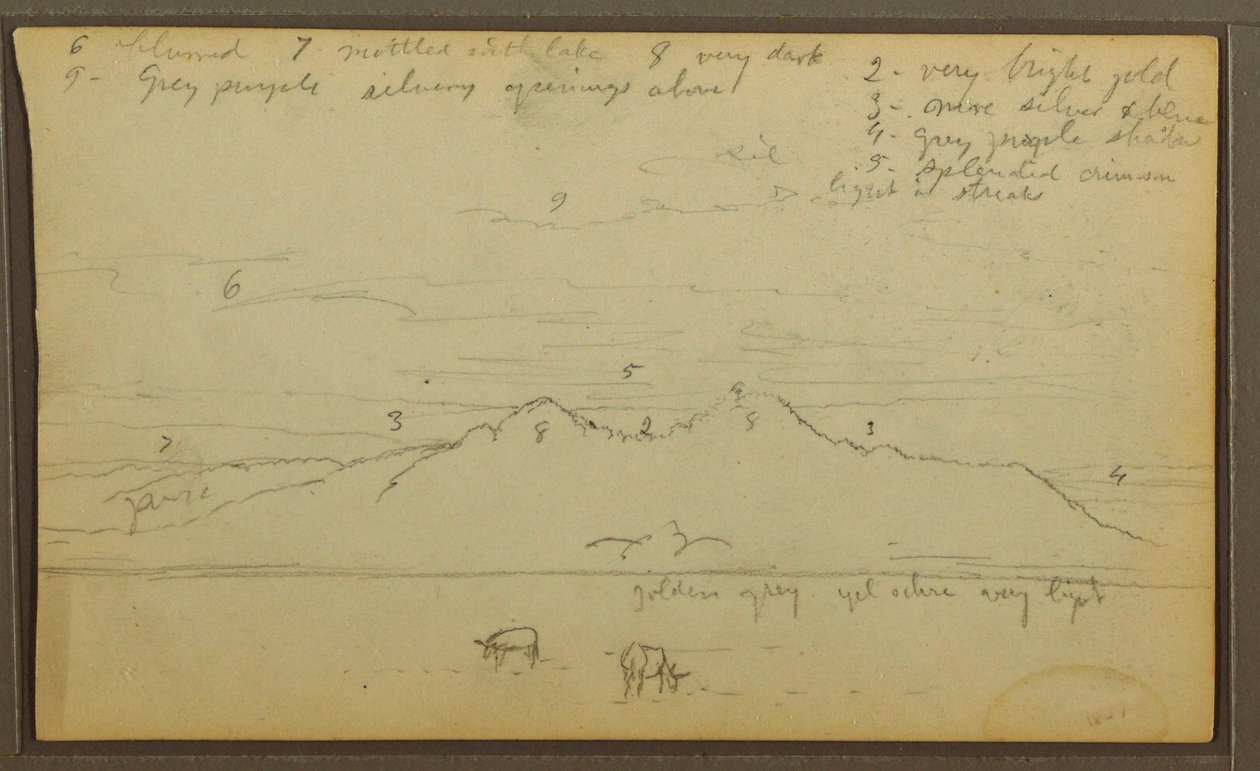 6 blurred 7. mottled with lake 8 very dark
9- Grey purple silvery openings above
2- very bright gold
3- more silver & blue
4- grey purple shadow
5- splendid crimson
light in streaks
9
6
5
3 8 2 8 3
7 4
pure
golden grey yel ochre very light